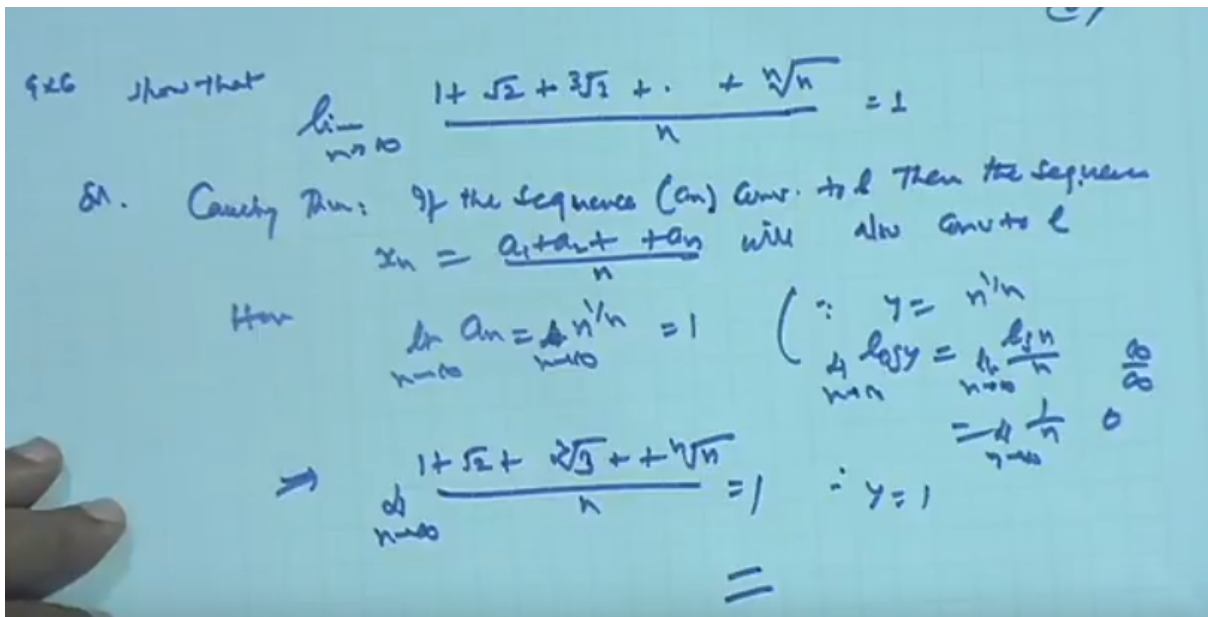 Ex6 show that
lim n→∞ (1 + √2 + ∛3 + . + ⁿ√n) / n = 1
Sol. Cauchy Thm: If the sequence (an) conv. to l Then the sequence
xn = (a1+a2+ +an) / n will also conv to l
Here lt n→∞ an = lt n→∞ n^1/n = 1 ( ∵ y = n^1/n
lt n→∞ log y = lt n→∞ log n / n ∞/∞
= lt n→∞ 1/n 0
⇒ lt n→∞ (1 + √2 + ∛3 + + ⁿ√n) / n = 1 ∴ y = 1